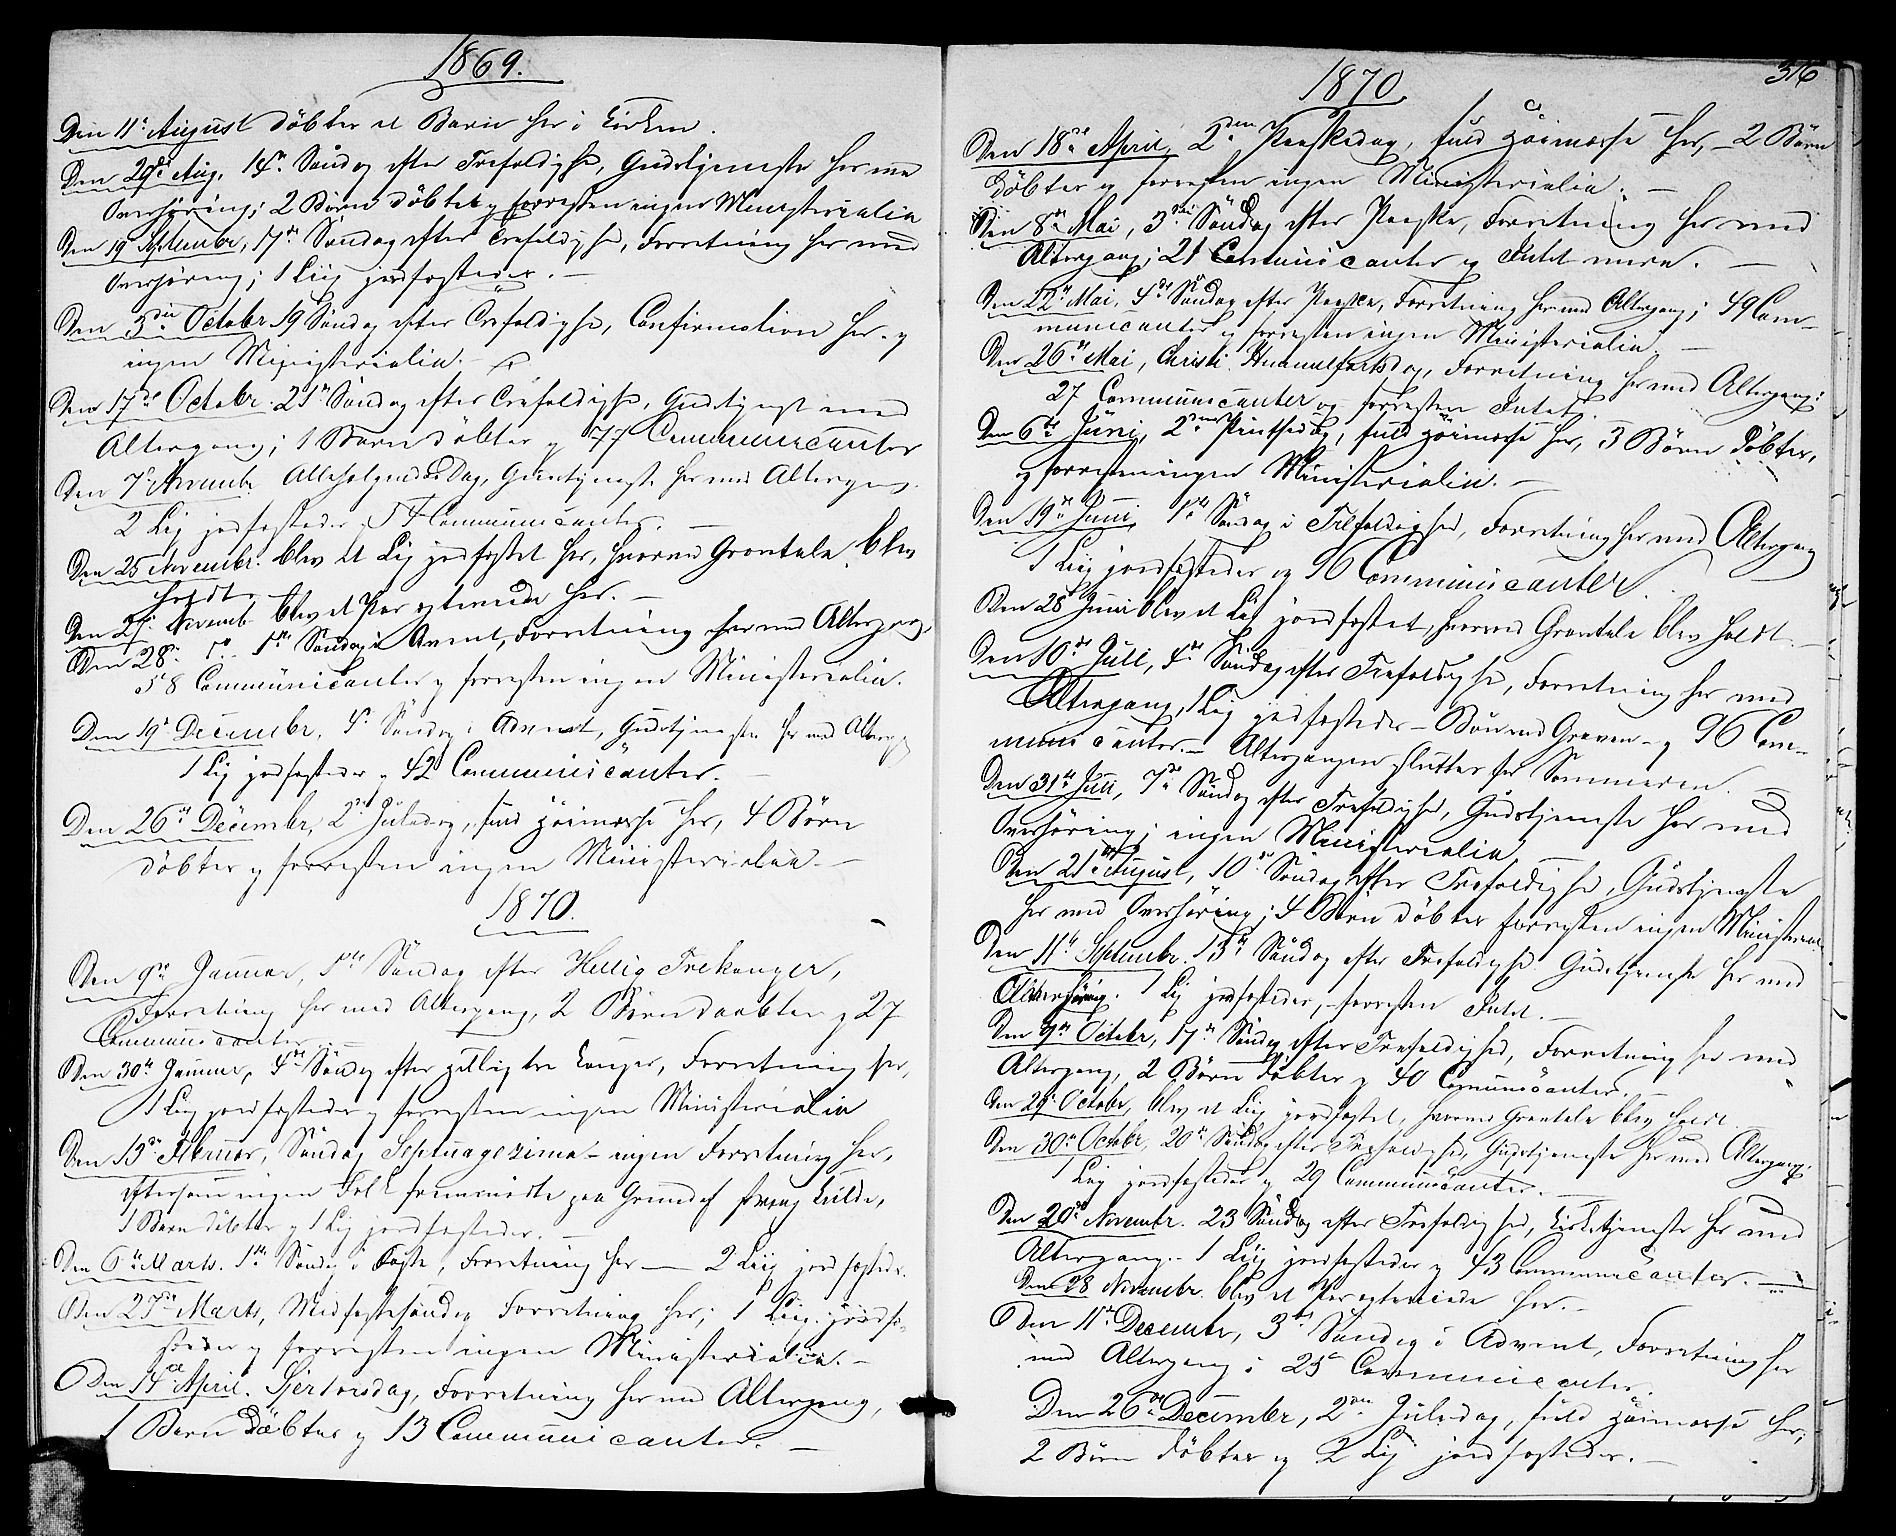 1869.
Den 11te August döbtes et Barn her i Kirken.
Den 29de Aug. 14de Söndag efter Trefoldighed, Gudstjeneste her med
Overhöring; 2 Börn döbtes og forresten ingen Ministerialia
Den 19 Septembr, 17de Söndag efter Trefoldighed, Forretning her med
Overhöring; 1 Liig jordfæstedes. —
Den 3die Octobr 19 Söndag efter Trefoldighed, Confirmation her og
ingen Ministerialia. —
Den 17de Octobr. 21de Söndag efter Trefoldighed, Gudstjenest med
Altergang; 1 Barn döbtes og 77 Communicanter
Den 7de Novembr. Allehelgensdag, Gudstjeneste her med Altergang.
2 Lig jordfæstedes 54 Communicanter. —
Den 25 Novembr. blev et Lig jordfæstet her, hvorved Gravtale blev
holdt. —
Den 27de Novemb blev et Par egteviede her. —
Den 28de 1ste Söndag i Avent, Forretning her med Altergang,
58 Communicanter og forresten ingen Ministerialia.
Den 19de Decembr, 4de Söndag i Advent, Gudstjeneste her med Alterg
1 Lig jordfæstedes og 42 Communicanter. —
Den 26de Decembr, 2den Juledag, fuld Höimesse her, 4 Börn
döbtes og forresten ingen Ministerialia. —
1870.
Den 9de Januar, 1ste Söndag efter Hellig Trekonger,
Forretning her med Altergang, 2 Börn daabtes og 27
Communicanter. —
Den 30te Januar, 4de Söndag efter hellig tre Konger, Forretning her,
1 Lig jordfæstedes og forresten ingen Ministerialia
Den 13de Februar, Söndag Septuagezima — ingen Forretning her,
eftersom ingen Folk fremmödte paa Grund af streng Kulde,
1 Barn döbtes og 1 Lig jordfæstedes. —
Den 6te Marts. 1ste Söndag i Faste, Forretning her — 2 Liig jordfæstedes.
Den 27de Marts, Midfastesöndag Forretning her; 1 Liig jordfæ-
stedes og forresten ingen Ministerialia. —
Den 14de April. Skjertorsdag, Forretning her med Altergang,
1 Barn döbtes og 13 Communicanter. —
316
1870
Den 18de April, 2den Paaskedag, fuld Höimesse her, — 2 Börn
döbtes og forresten ingen Ministerialia. —
Den 8de Mai, 3die Söndag efter Paaske, Forretning her med
Altergang; 21 Communicanter og Intet mere. —
Den 22de Mai, 4de Söndag efter Paaske, Forretning her med Altergang; 49 Com-
municanter og forresten ingen Ministerialia. —
Den 26de Mai, Christi Himmelfartsdag, Forretning her med Altergang:
27 Communicanter og forresten Intet.
Den 6te Juni, 2den Pintsedag, fuld Höimesse her, 3 Börn döbtes,
og forresten ingen Ministerialia. —
Den 19de Juni, 1ste Söndag i Trefoldighed, Forretning her med Altergang
1 Liig jordfæstedes og 96 Communicanter.
Den 28 Juni blev et Lig jordfæstet, hvorved Gravtale blev holdt. —
Den 10de Juli, 4de Söndag efter Trefoldighed, Forretning her med
Altergang, 1 Lig jordfæstedes — Bön ved Graven — og 96 Com-
municanter. — Altergangen slutter for Sommeren. —
Den 31te Juli, 7de Söndag efter Trefoldighed, Gudstjeneste her med
Overhöring; ingen Ministerialia
Den 21de August, 10de Söndag efter Trefoldighed, Gudstjeneste
her med Overhöring; 4 Börn döbtes forresten ingen Ministerial.
Den 11te Septembr. 13de Söndag efter Trefoldighed Gudstjeneste her med
1 Lig jordfæstedes, forresten Intet. —
Den 9de Octobr, 17de Söndag efter Trefoldighed, Forretning her med
Altergang, 2 Börn döbtes og 40 Communicanter. —
Den 29de Octobr, blev et Liig jordfæstet, hvorved Gravtale blev holdt.
Den 30te Octobr, 20de Söndag efter Trefoldighed, Gudstjeneste her med Altergang;
1 Lig jordfæstedes og 29 Communicanter. —
Den 20de Novembr. 23 Söndag efter Trefoldighed, Kirketjeneste her med
Altergang. — 1 Liig jordfæstedes og 43 Communicanter. —
Den 28 Novembr. blev et Par egteviede her. —
Den 11te Decembr, 3die Söndag i Advent, Forretning her
med Altergang; 25 Communicanter.
Den 26de Decembr, 2den Juledag, fuld Höimesse her,
2 Börn döbtes og 2 Lig jordfæstedes. —